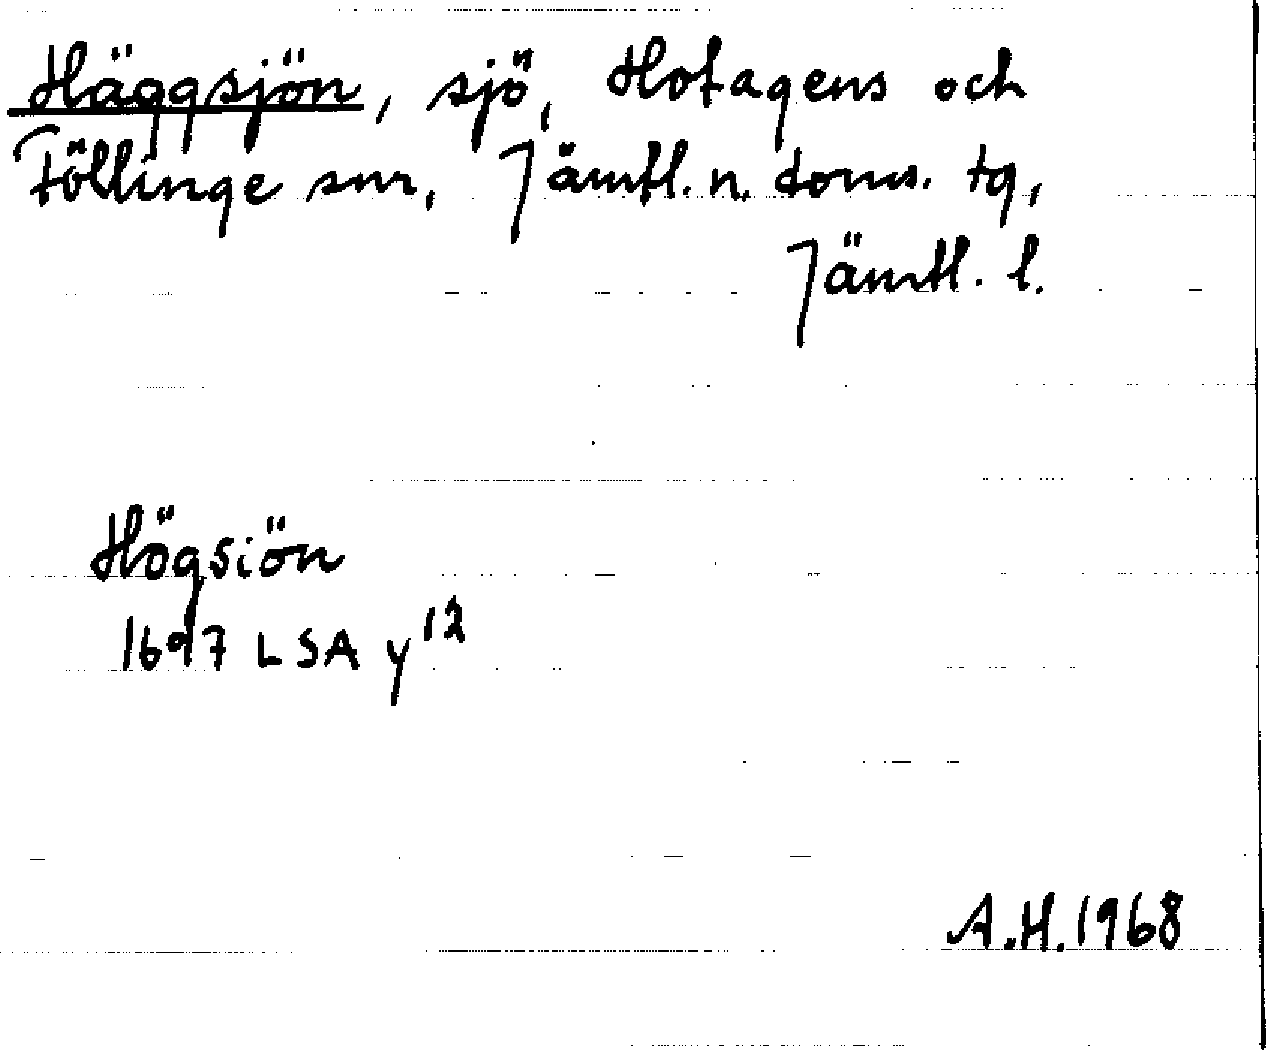 Häggsjön, sjö, Hotagens och
Föllinge snr, Jämtl. n. doms. tg,
Jämtl. l.
Högsiön
1697 LSA y12
A.H. 1968